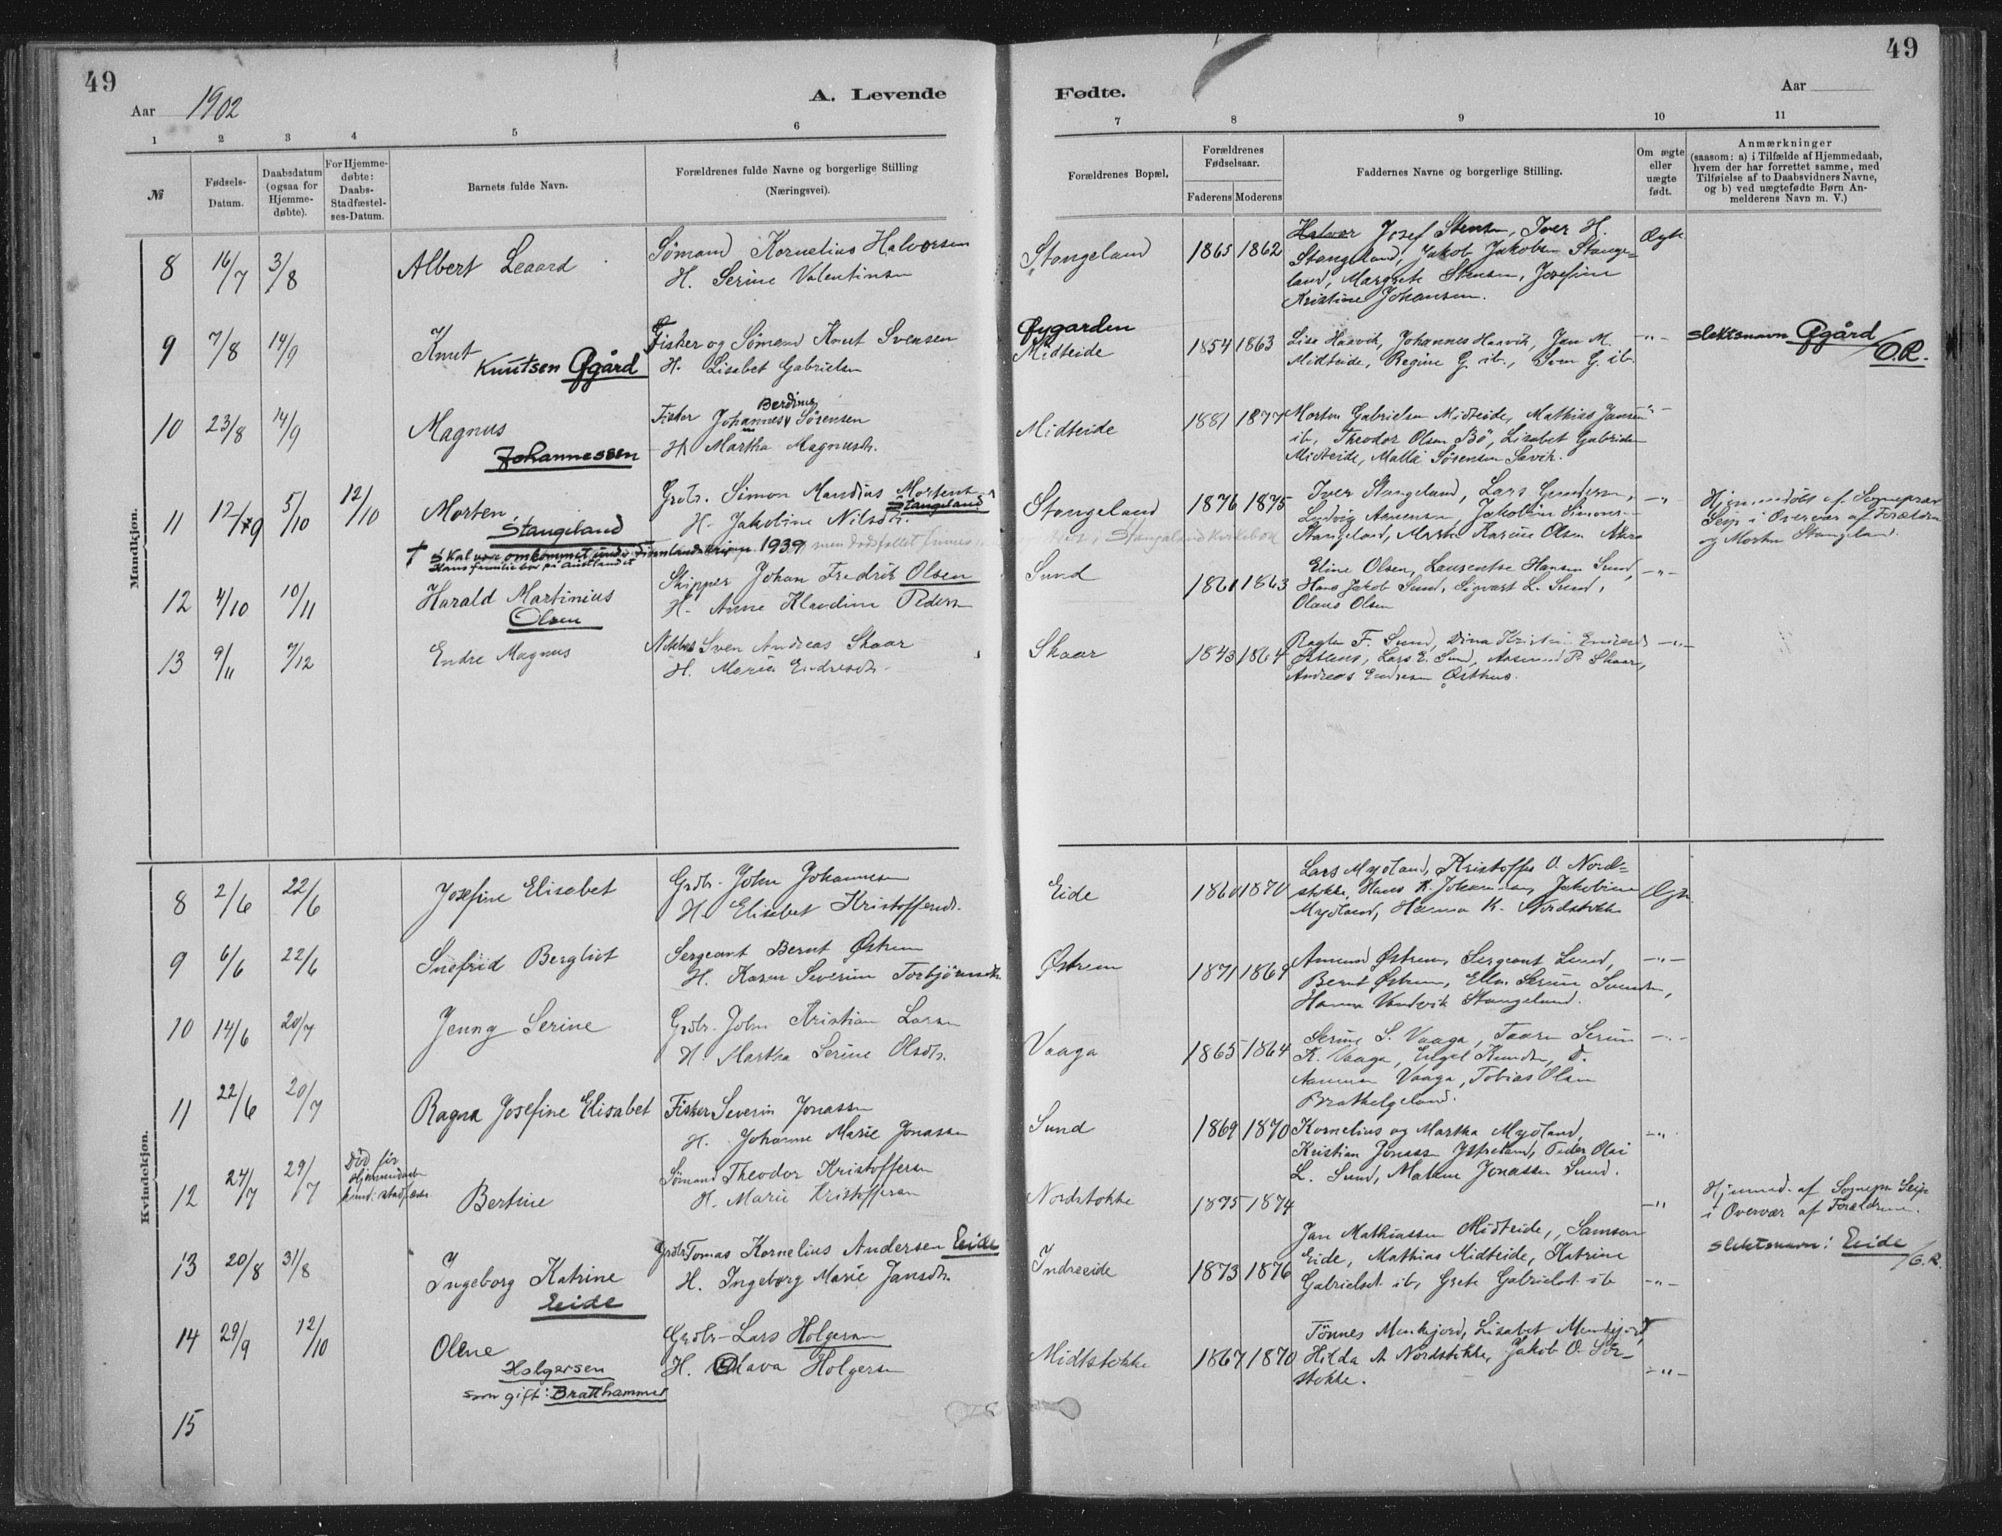 49
49
Aar 1902
A. Levende
Fødte.
Aar
1
2
3
4
5
6
7
8
9
10
11
№
Fødsels-
Datum.
Daabsdatum
(ogsaa for
Hjemme-
døbte).
For Hjemme-
døbte:
Daabs-
Stadfæstel-
ses-Datum.
Barnets fulde Navn.
Forældrenes fulde Navne og borgerlige Stilling
(Næringsvei).
Forældrenes Bopæl,
Forældrenes
Fødselsaar.
Faderens
Moderens
Faddernes Navne og borgerlige Stilling.
Om ægte
eller
uægte
født.
Anmærkninger
(saasom: a) i Tilfælde af Hjemmedaab,
hvem der har forrettet samme, med
Tilføielse af to Daabsvidners Navne,
og b) ved uægtefødte Børn An-
melderens Navn m. V.)
Mandkjøn.
8 16/7 3/8 Albert Leaard
Sømand Kornelius Halvorsen
H. Serine Valentinsen
Stangeland 1865 1862
Halvor Josef Stensen, Iver H.
Stangeland, Jakob Jakobsen Stange-
land, Margrete Stensen, Josefine
Kristine Johansen.
Ægte
9 7/8 14/9 Knut
Knutsen Øgård
Fisker og Sømand Knut Svensen
H. Lisabet Gabrielsen
Øygarden
Midteide 1854 1863
Lise Haavik, Johannes Haavik, Jan M.
Midteide, Regine G. ib., Sven G. ib.
-"-
slektsnavn Øgård
/O.R.
10 23/8 14/9 Magnus
Johannessen
Berdines
Fisker Johannes Sørensen
H. Martha Magnusdtr.
Midteide 1881 1877
Morten Gabrielsen Midteide, Mathias Jansen
ib, Theodor Olsen Bø, Lisabet Gabrielsen
Midteide, Malla Sørensen Sævik.
-"-
11 12/9 5/10 12/10 Morten
Stangeland
Grdbr. Simon Mandius Mortens
Stangeland
H. Jakobine Nilsdtr.
Stangeland 1876 1875
Iver Stangeland, Lars Gundersen,
Ludvig Aanensen Jakobine Simons-
Stangeland, Marta Karine Olsen Akre
-"-
Hjemmedøbt af Sognepræst
Seip i Overvær af Forældrene
og Morten Stangeland.
† Skal være omkommet under Finnlandskrigen 1939 men dødsfallet finnes
Hans familie bor på Austlandet
12 4/10 10/11 Harald Martinius
Olsen
Skipper Johan Fredrik Olsen
H. Anne Klaudine Peders
Sund 1861 1863
Eline Olsen, Laurentse Hansen Sund,
Hans Jakob Sund, Sigvart L. Sund,
Olaus Olsen
-"-
13 9/11 7/12 Endre Magnus
Sven Andreas Skaar
H. Maria Endresdtr.
Skaar 1843 1864
F. Sund, Dina
Østhus, Lars E. Sund, Aasmund P. Skaar,
Andreas Endresen Østhus.
-"-
Kvindekjøn.
8 2/6 22/6 Josefine Elisabet
Grdbr. John Johannesen
H. Elisabet Kristoffersdtr.
Eide 1860 1870
Lars Mydland, Kristoffer O. Nord-
stokke, Hans K. Johannesen, Jakobine
Mydland, Hanna K. Nordstokke
Ægte
9 6/6 22/6 Snefrid Bergliot
Sergeant Bernt Østrem
H. Karen Severine Torbjørnsdtr.
Østrem 1871 1869
Amund Østrem, Sergeant Lund,
Bernt Østrem, Ellen Serine Svendsen,
Hanna Vandvik Stangeland.
-"-
10 14/6 20/7 Jenny Serine
Grdbr. John Kristian Larsen
H. Martha Serine Olsdtr.
Vaaga 1865 1864
Serine S. Vaaga, Taaran Serine
K. Vaaga, Engel Knudsen, O.
Aanensen Vaaga, Tobias Olsen
Brathelgeland.
-"-
11 22/6 20/7 Ragna Josefine Elisabet
Fisker Severin Jonassen
H. Johanne Marie Jonassen
Sund 1869 1870
Kornelius og Martha Mydland,
Kristian Jonassen Ystreland, Peder Olai
L. Sund, Malene Jonassen Sund.
-"-
12 24/7 29/7 Død før
Bertine
Sømand Theodor Kristoffersen
H. Marie Kristoffersen
Nordstokke 1875 1874
-"-
Hjemmed. af Sognepr Seip
i Overvær af Forældrene.
13 20/8 31/8 Ingeborg Katrine
Eide
Grdbr Tomas Kornelius Andersen Eide
H. Ingeborg Marie Jansdtr.
Indreeide 1873 1876
Jan Mathiassen Midteide, Samson
Eide, Mathias Midteide, Katrine
Gabrielsdt ib, Grete Gabrielsdt ib
-"-
slektsnavn: Eide
/O.R.
14 29/9 12/10 Olene
Holgersen
som gift: Bratthammer
Grdbr- Lars Holgersen
H. Olava Holgersen
Midtstokke 1867 1870
Tønnes Munkejord, Lisabet Munkejord,
Hilda A. Nordstokke, Jakob O. Sør-
stokke.
-"-
15